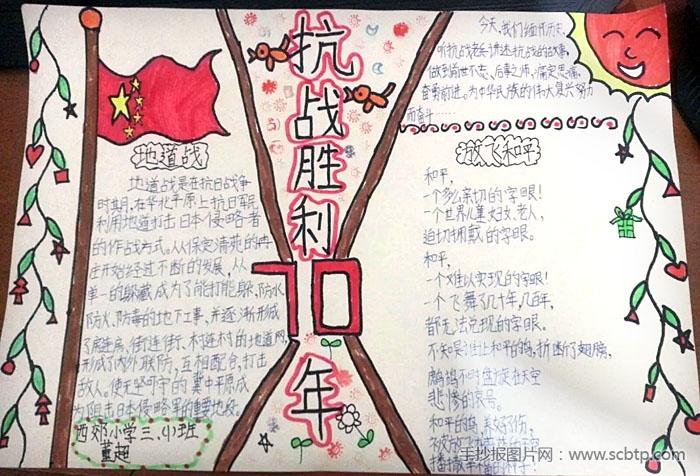 抗战胜利
70
年
地道战
地道战是在抗日战争
时期,在华北平原上抗日军民
利用地道打击日本侵略者
的作战方式。从保定清苑的冉
庄开始,经过不断的发展,从
单一的躲藏成为了能打能躲、防水
防火、防毒的地下工事,并逐渐形成
了房连房、街连街、村连村的地道网,
形成了内外联防,互相配合,打击
敌人。使无坚可守的冀中平原成
为阻击日本侵略军的重要地段。
西郊小学三、(1)班
董超
今天,我们缅怀历史,
听抗战老兵讲述抗战的故事,
做到前世不忘、后事之师,痛定思痛,
奋勇前进。为中华民族的伟大复兴努力
而奋斗……
和平
和平,
一个多么亲切的字眼!
一个世界儿童、妇女、老人,
迫切拥戴的字眼。
和平,
一个难以实现的字眼!
一个飞舞了几十年、几百年,
都无法兑现的字眼。
不知是谁让和平的鸽,折断了翅膀,
鹧鸪不时盘旋在天空
悲惨的哀号。
和平的鸽,美好伤,
手抄报图片网:www.scbtp.com